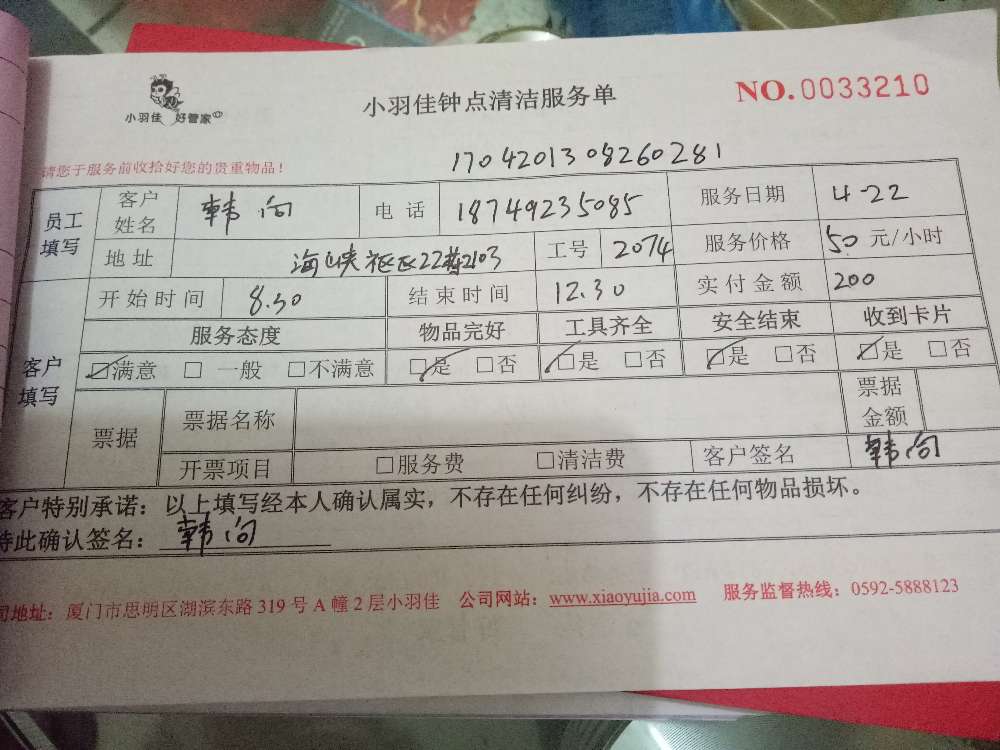 小羽佳 好管家
小羽佳钟点清洁服务单
NO.0033210
请您于服务前收拾好您的贵重物品！
1704201308260281
员工填写 客户姓名 韩向 电话 18749235085 服务日期 4-22
地址 海峡社区22 2103 工号 2074 服务价格 50 元/小时
客户填写 开始时间 8.30 结束时间 12.30 实付金额 200
服务态度 物品完好 工具齐全 安全结束 收到卡片
☑满意 □一般 □不满意 ☑是 □否 ☑是 □否 ☑是 □否 ☑是 □否
票据 票据名称 票据金额
开票项目 □服务费 □清洁费 客户签名 韩向
客户特别承诺：以上填写经本人确认属实，不存在任何纠纷，不存在任何物品损坏。
特此确认签名：韩向
司地址：厦门市思明区湖滨东路 319 号 A 幢 2 层小羽佳 公司网站：www.xiaoyujia.com 服务监督热线：0592-5888123